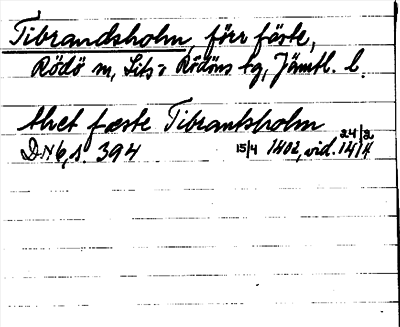 Tibrandsholm, förr fäste,
Rödö sn, Lits o Rödöns tg, Jämtl. l.
thet fæste Tibrantsholm
DN 6, s. 394 15/4 1402, vid. 24/2 1414